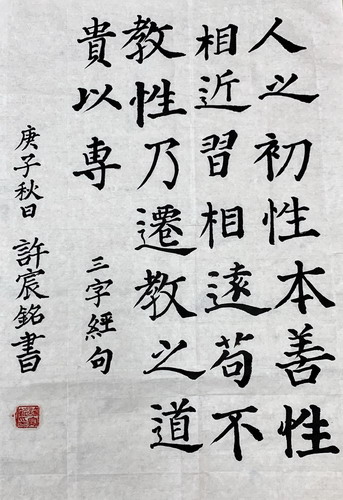 人之初性本善性
相近習相遠苟不
教性乃遷教之道
貴以専
三字經句
庚子秋日 許宸銘書